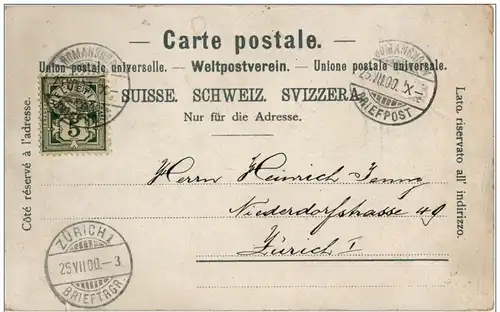 — Carte postale. —
Union postale universelle. — Weltpostverein. — Unione postale universale.
SUISSE. SCHWEIZ. SVIZZERA.
Nur für die Adresse.
Côté réservé à l'adresse.
Lato riservato all' indirizzo.
ROMANSHORN
ROMANSHORN
25.VII.00.
BRIEFPOST
5
Herrn Heinrich Jenny
Niederdorfstrasse 49
Zürich I
ZÜRICH 1
25 VII 00. – 3
BRIEFTRGR.